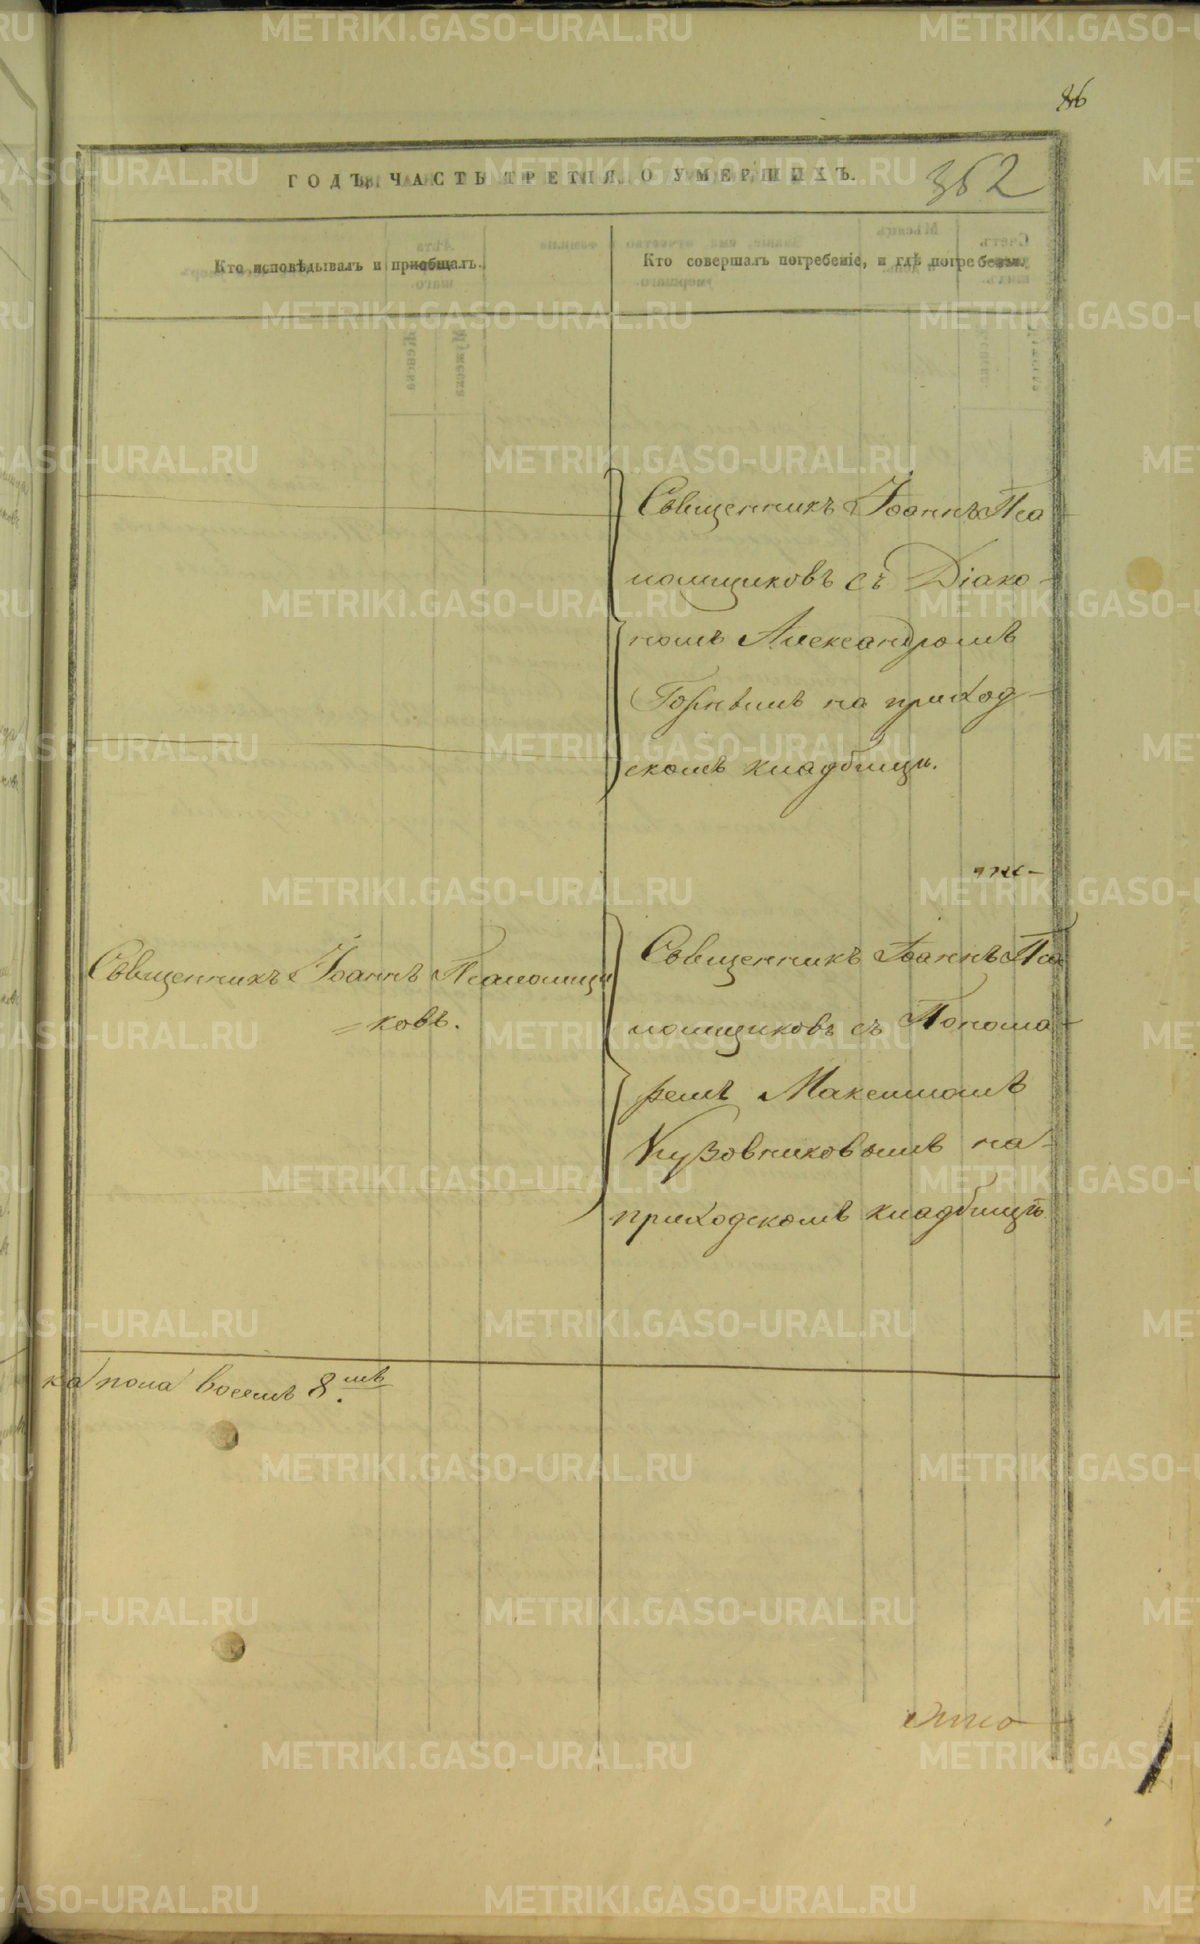 86
ГОДЪ, ЧАСТЬ ТРЕТІЯ, О УМЕРШИХЪ.
362
Кто исповѣдывалъ и пріобщалъ.
Кто совершалъ погребеніе, и гдѣ погребены.
Священникъ Іоаннъ Пса
ломщиковъ съ Діако-
номъ Александромъ
на приход-
скомъ кладбищѣ.
Священникъ Іоаннъ Псаломщи
=ковъ.
Священникъ Іоаннъ Пса
ломщиковъ съ Понома-
ремъ Максимомъ
Кузовниковымъ на-
приходскомъ кладбищѣ.
ка пола восемь 8.мь
METRIKI.GASO-URAL.RU